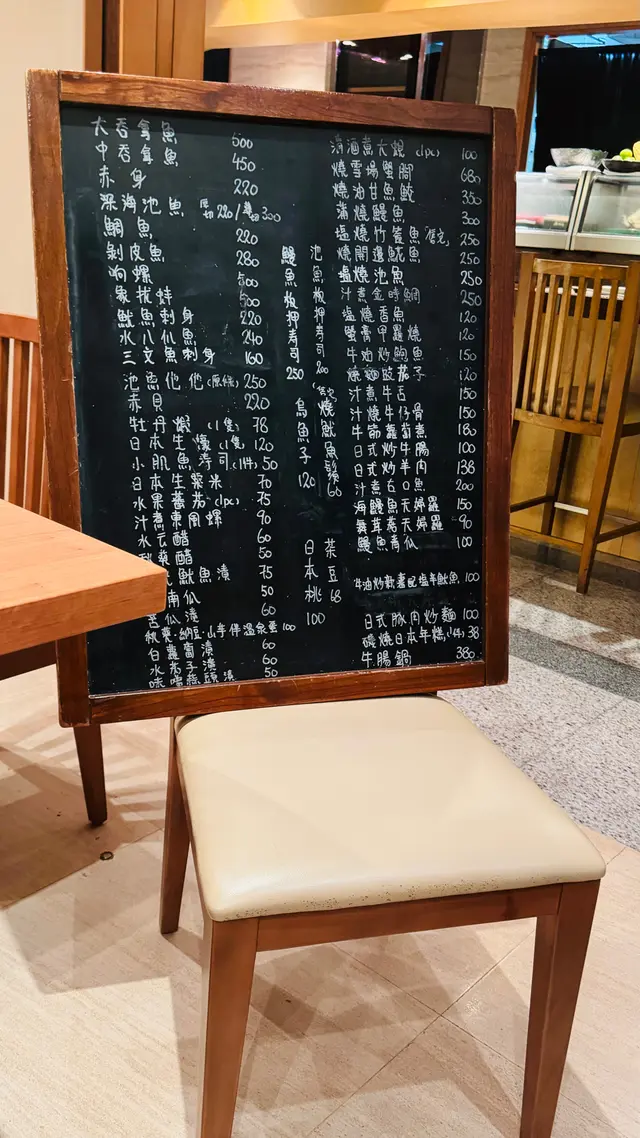 大吞拿魚 500
中吞拿魚 450
赤身 220
深海池魚 厚切220/薄切300
鯛魚 220
剝皮魚 280
响螺 500
象拔蚌 500
魷魚刺身 220
水八爪魚 240
三文魚刺身 160
池魚他他(原條) 250
赤貝 220
牡丹蝦(1隻) 78
日本生蠔(1隻) 120
小肌魚壽司(1件) 50
日本生粟米 70
水果蕃茄(1pc) 75
汁煮東風螺 90
水元醋 60
醋 50
魷魚漬 75
南瓜 50
苦瓜漬 60
秋葵·納豆·山芋伴溫泉蛋 100
白蘿蔔漬 60
水茄子漬 60
味噌蒜頭漬 50
鰻魚板押壽司 250
池魚板押壽司 200
烏魚子 120
燒魷魚鬚 60
日本桃 100
茶豆 68
清酒煮大蜆(1pc) 100
燒雪場蟹腳 680
燒油甘魚鮫 350
蒲燒鰻魚 300
塩燒竹簽魚「售完」 250
燒開邊魷魚 250
塩燒池魚 250
汁煮金時鯛 250
塩燒香魚 120
蟹膏甲羅燒 120
牛油炒鮑魚 150
燒麵豉茄子 120
汁煮牛舌 150
汁燒牛仔骨 150
牛筋蘿蔔煮 180
日式炒牛肉 100
日式炒羊肉 138
汁煮右口魚 200
海鰻魚天婦羅 150
舞茸菇天婦羅 90
鰻魚青瓜 100
100
日式豚肉炒麵 100
磯燒日本年糕(1件) 38
牛腸鍋 380